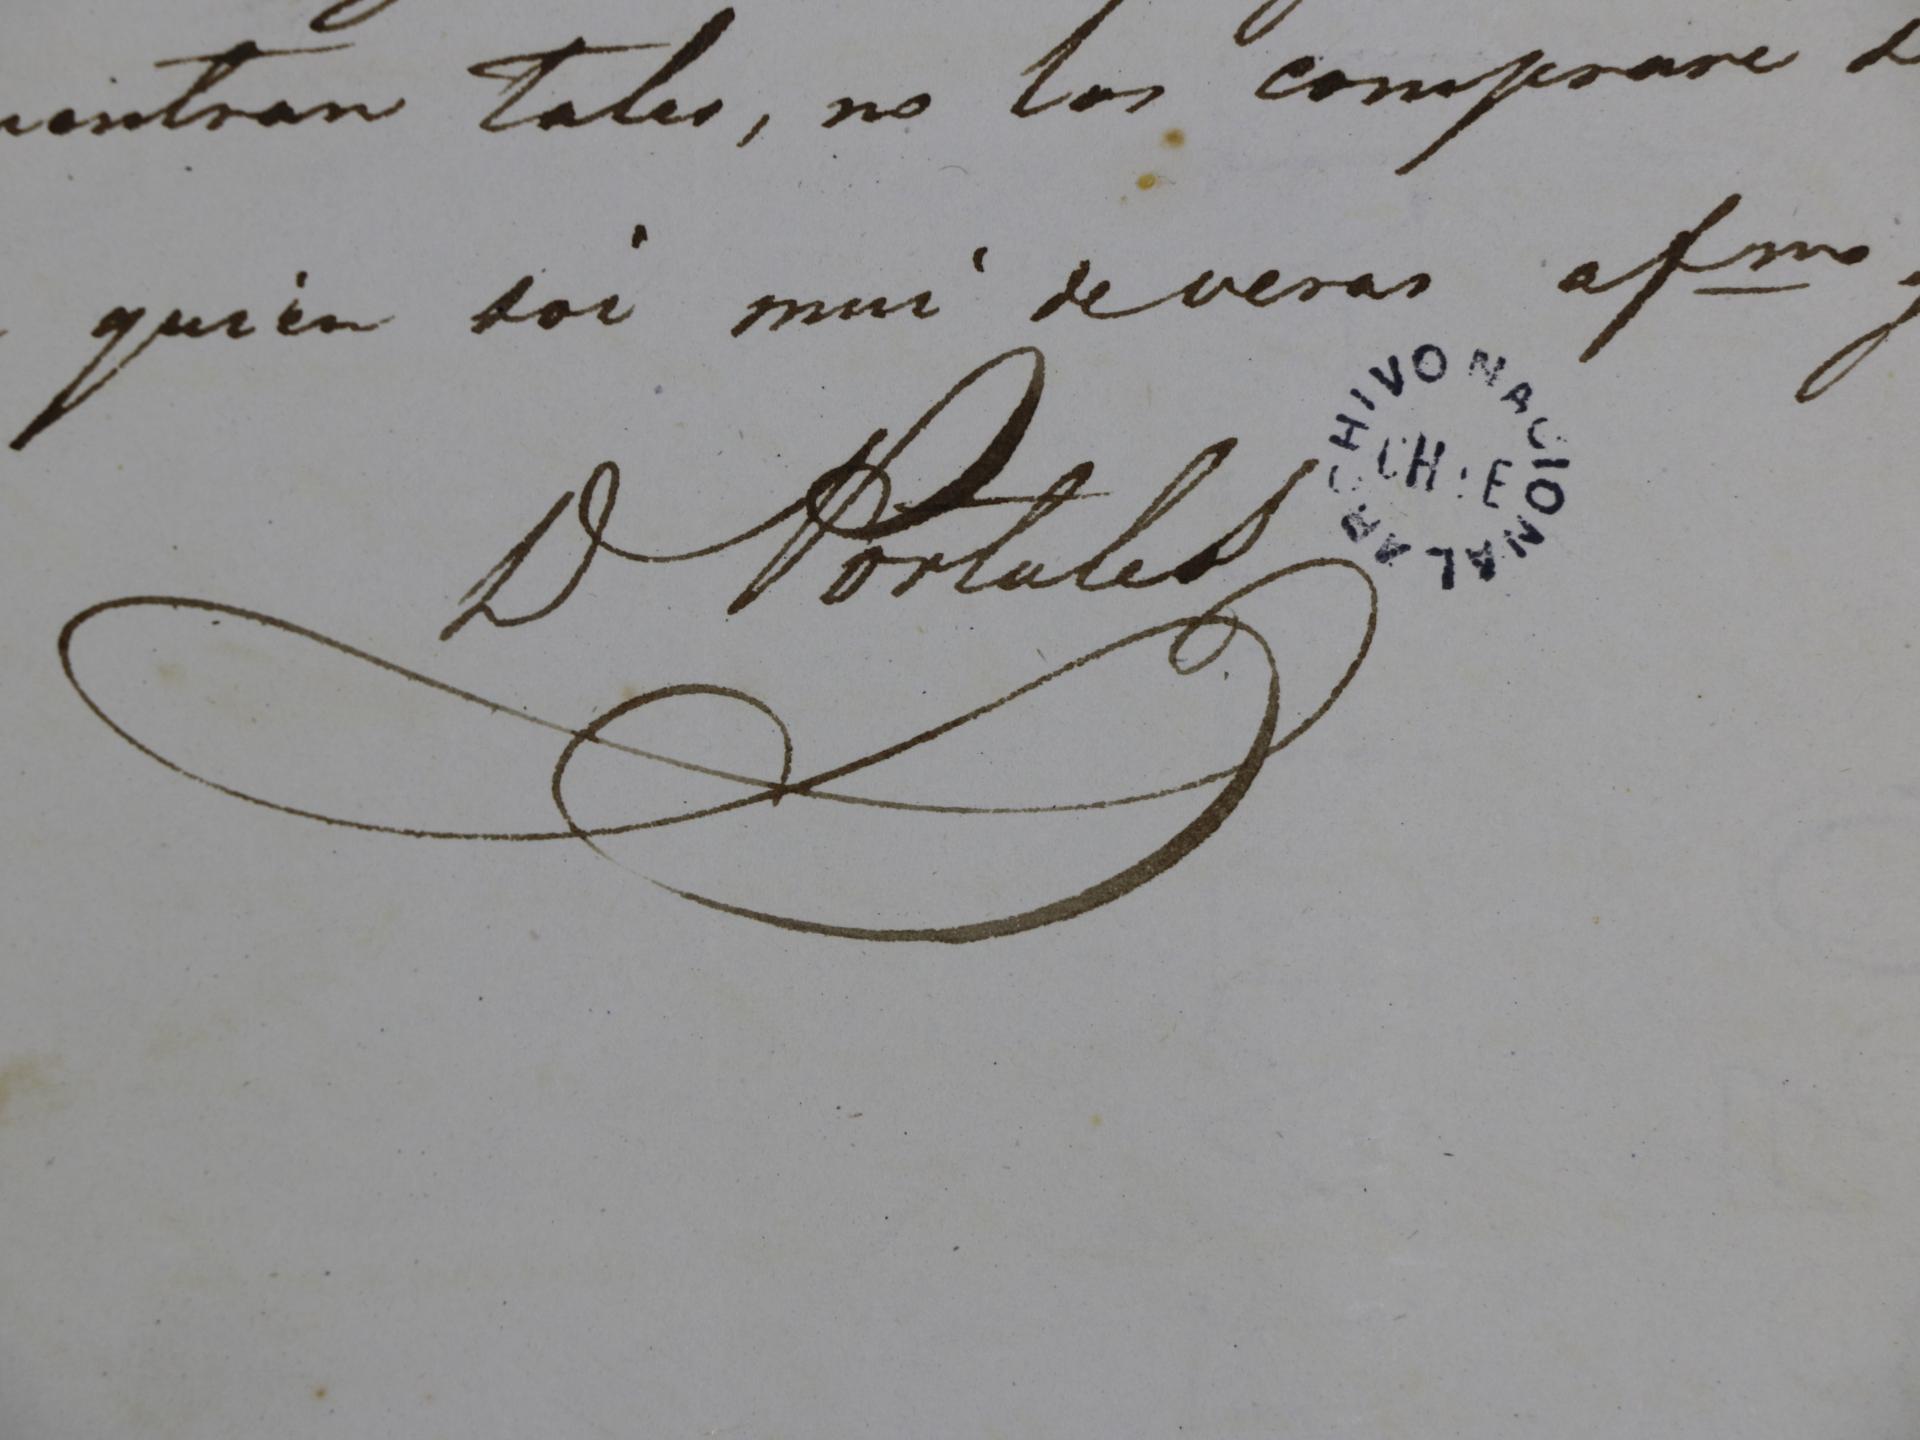 tales, no los comprare
quien soi mui de veras afmo
D Portales
ARCHIVO NACIONAL
CHILE